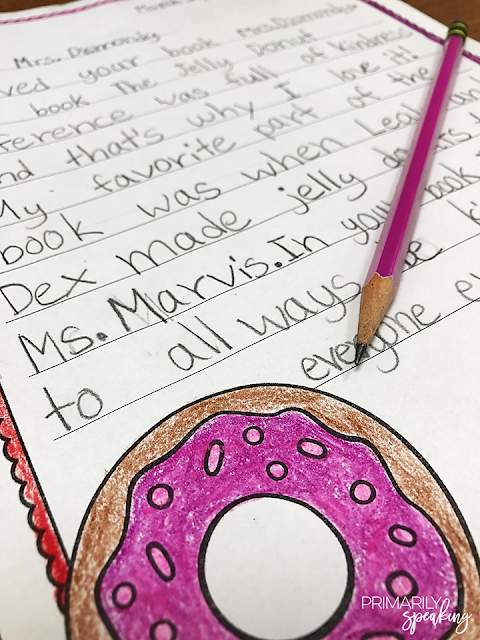 Mrs. Diamondy
ved your book Mrs. Diamondy
book The Jelly Donut
ference was full of kindness
nd that's why I love it!
My favorite part of the
book was when Leah an
Dex made jelly do ts
Ms. Marvis. In you book
to all ways be ki
everyone ev
PRIMARILY
speaking